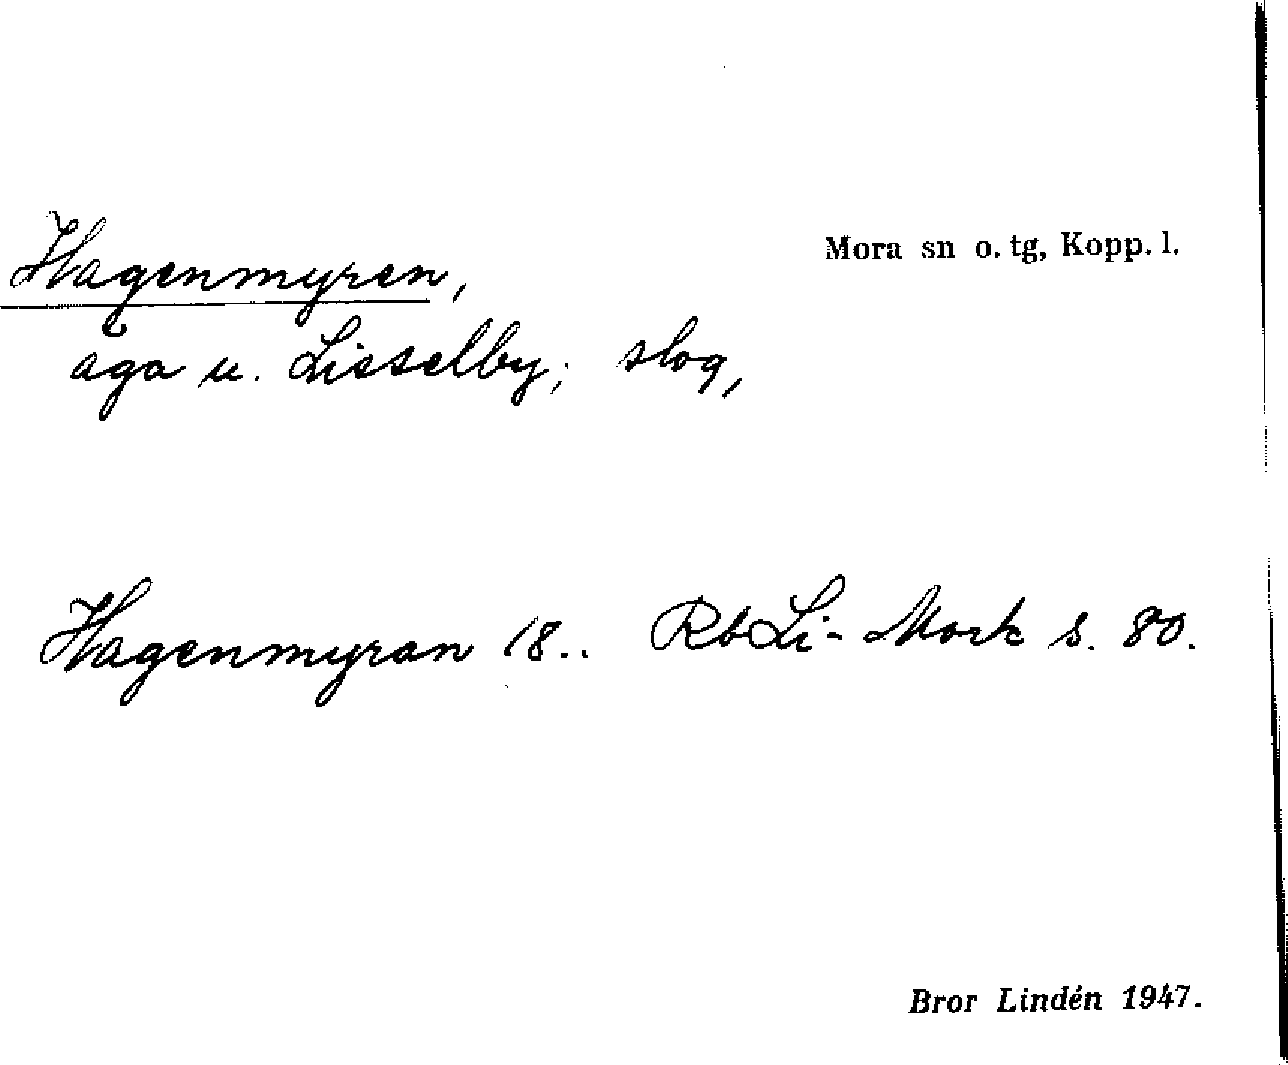 Mora sn o. tg, Kopp. l.
Hagenmyren,
äga u. Lisselby; slog,
Hagenmyran 18.. RbLi-Mork s. 80.
Bror Lindén 1947.